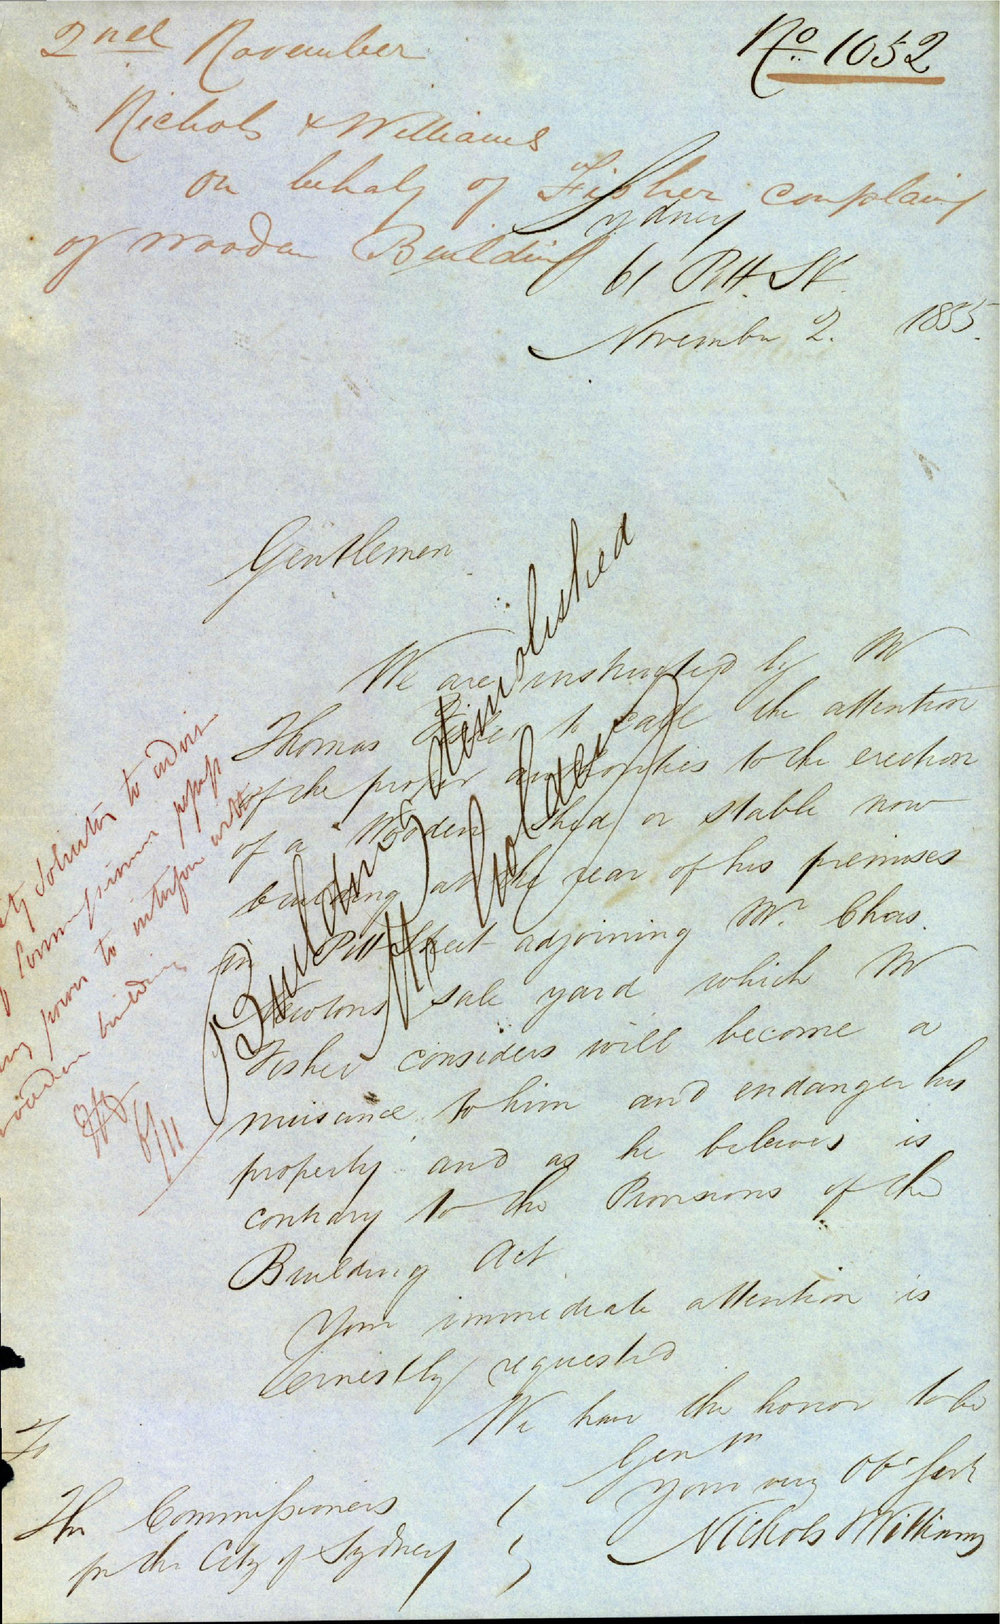 2nd November
No. 1052
Nichols & Williams
on behalf of Fisher complains
of wooden Building
Sydney
61 Pitt St
November 2. 1855.
Gentlemen
We are instructed by Mr
Thomas Fisher to call the attention
of the proper authorities to the erection
of a Wooden Shed or stable now
building at the rear of his premises
in Pitt Street adjoining Mr. Chas.
Newtons sale yard which Mr
Fisher considers will become a
nuisance to him and endanger his
property and as he believes is
contrary to the Provisions of the
Building Act
Your immediate attention is
ernestly requested
We have the honor to be
Gentn
Your very Obt Servts
Nichols & Williams
To
The Commissioners
for the City of Sydney
Building demolished
Solicitor to advise
Commissioners possess
any power to interfere with
wooden building
6/11